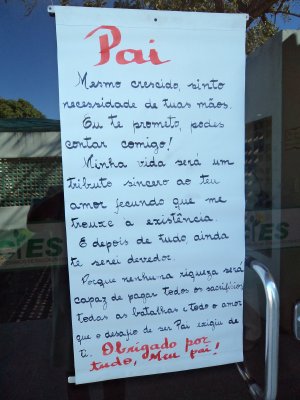 Pai
Mesmo crescido, sinto
necessidade de tuas mãos.
Eu te prometo, podes
contar comigo!
Minha vida será um
tributo sincero ao teu
amor fecundo que me
trouxe a existência.
E depois de tudo, ainda
te serei devedor.
Porque nenhuma riqueza será
capaz de pagar todos os sacrifícios,
todas as batalhas e todo o amor
que o desafio de ser Pai exigiu de
ti. Obrigado por
tudo, Meu pai!
IES